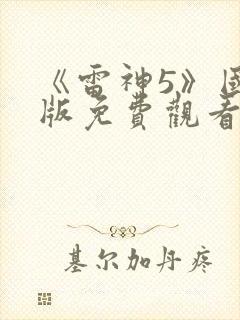 《雷神5》国
版免費觀看
基尔加丹疼